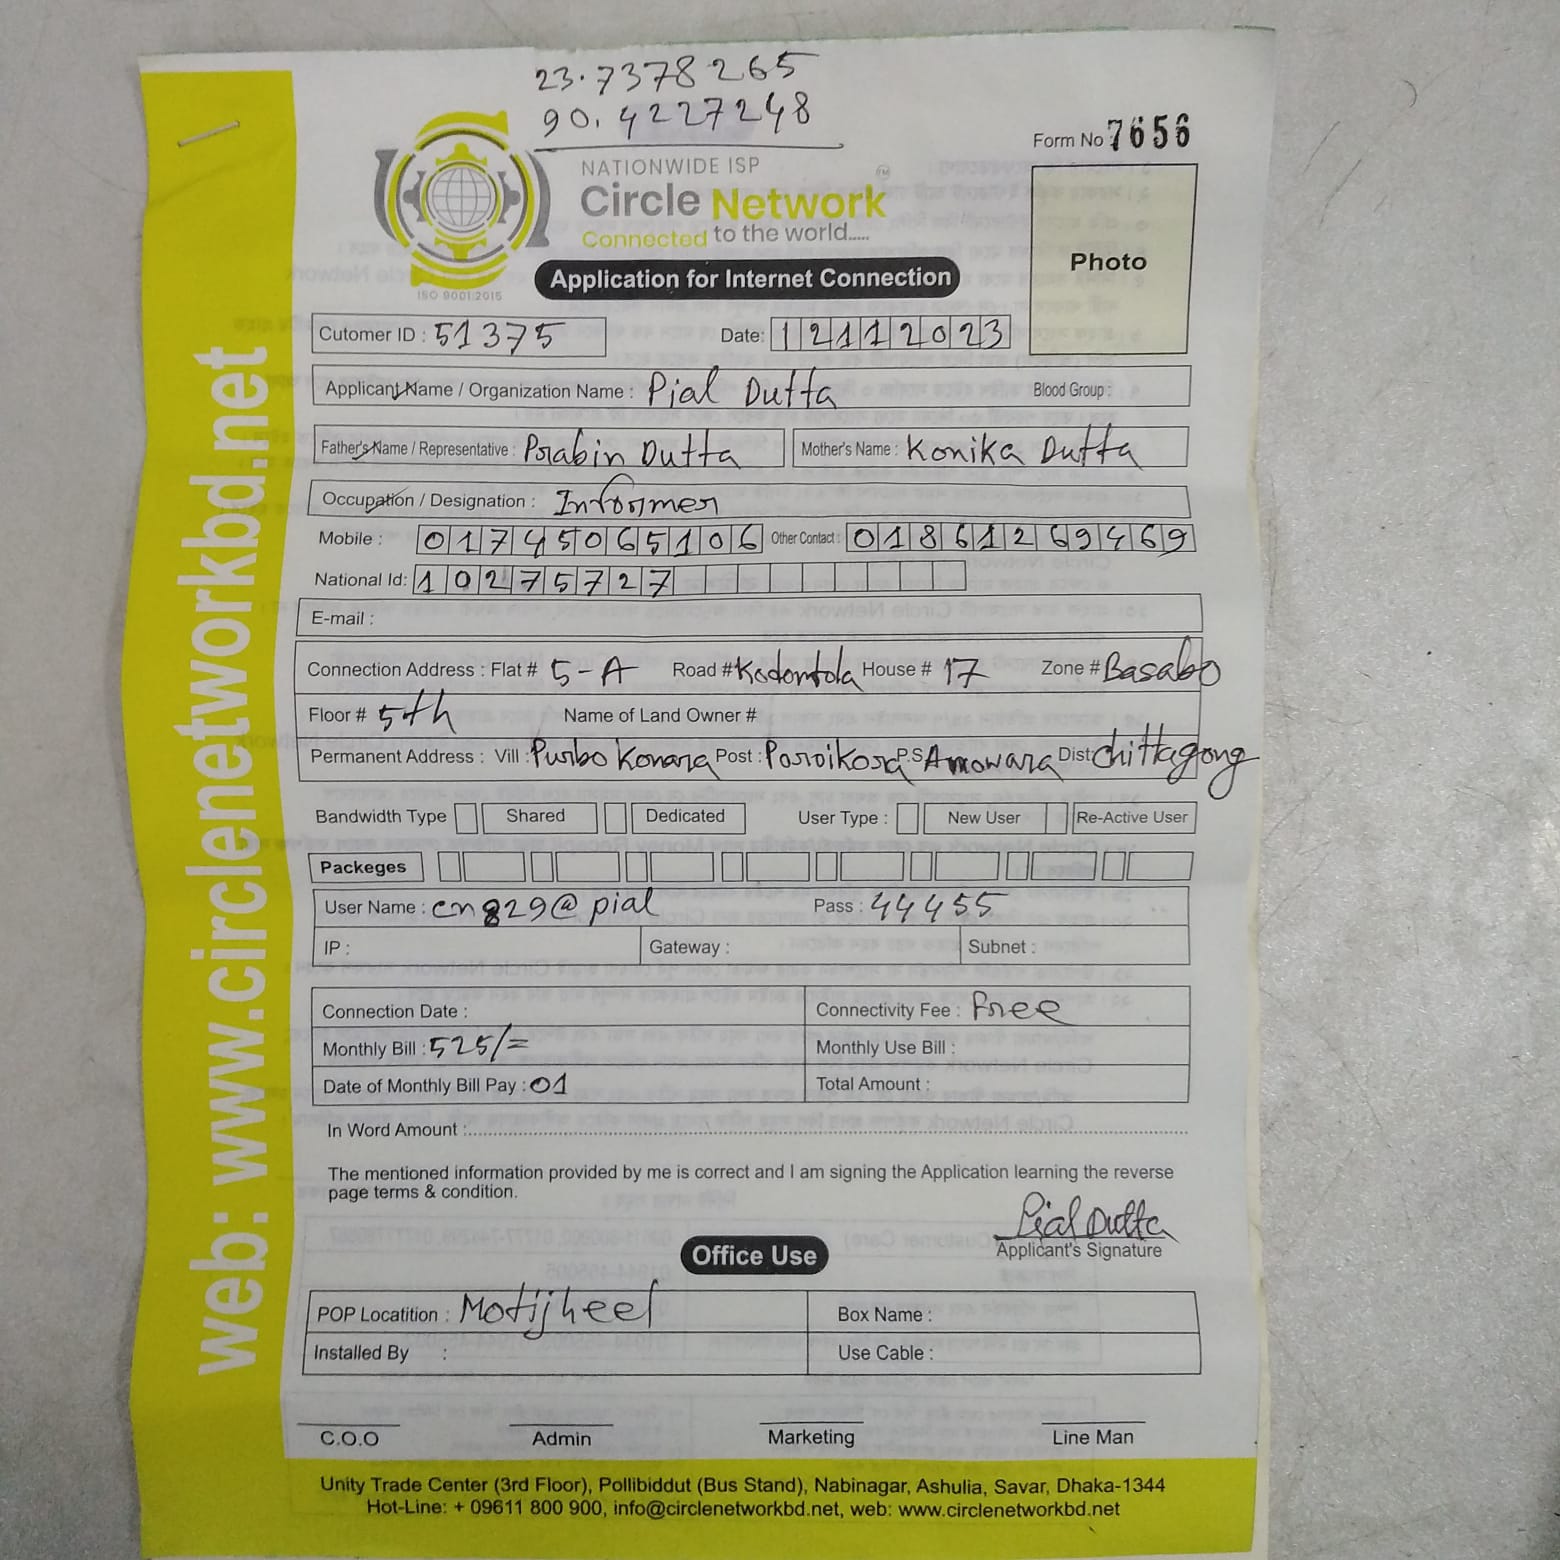 23.7378265
90.4227248
Form No 7656
NATIONWIDE ISP
Circle Network TM
Connected to the world.....
ISO 9001:2015
Application for Internet Connection
Photo
Cutomer ID : 51375
Date: 12112023
Applicant Name / Organization Name : Pial Dutta Blood Group :
Father's Name / Representative : Prabin Dutta Mother's Name : Konika Dutta
Occupation / Designation : Informer
Mobile : 01745065106 Other Contact : 01861269469
National Id: 10275727
E-mail :
Connection Address : Flat # 5-A Road # Kodomtola House # 17 Zone # Basabo
Floor # 5th Name of Land Owner #
Permanent Address : Vill : Purbo Konara Post : Poroikora P.S Anowara Dist: Chittagong
Bandwidth Type Shared Dedicated User Type : New User Re-Active User
Packeges
User Name : cn829@pial Pass : 44455
IP : Gateway : Subnet :
Connection Date : Connectivity Fee : Free
Monthly Bill : 525/= Monthly Use Bill :
Date of Monthly Bill Pay : 01 Total Amount :
In Word Amount :
The mentioned information provided by me is correct and I am signing the Application learning the reverse
page terms & condition.
Pial Dutta
Applicant's Signature
Office Use
POP Locatition : Motijheel Box Name :
Installed By : Use Cable :
C.O.O Admin Marketing Line Man
Unity Trade Center (3rd Floor), Pollibiddut (Bus Stand), Nabinagar, Ashulia, Savar, Dhaka-1344
Hot-Line: + 09611 800 900, info@circlenetworkbd.net, web: www.circlenetworkbd.net
web: www.circlenetworkbd.net